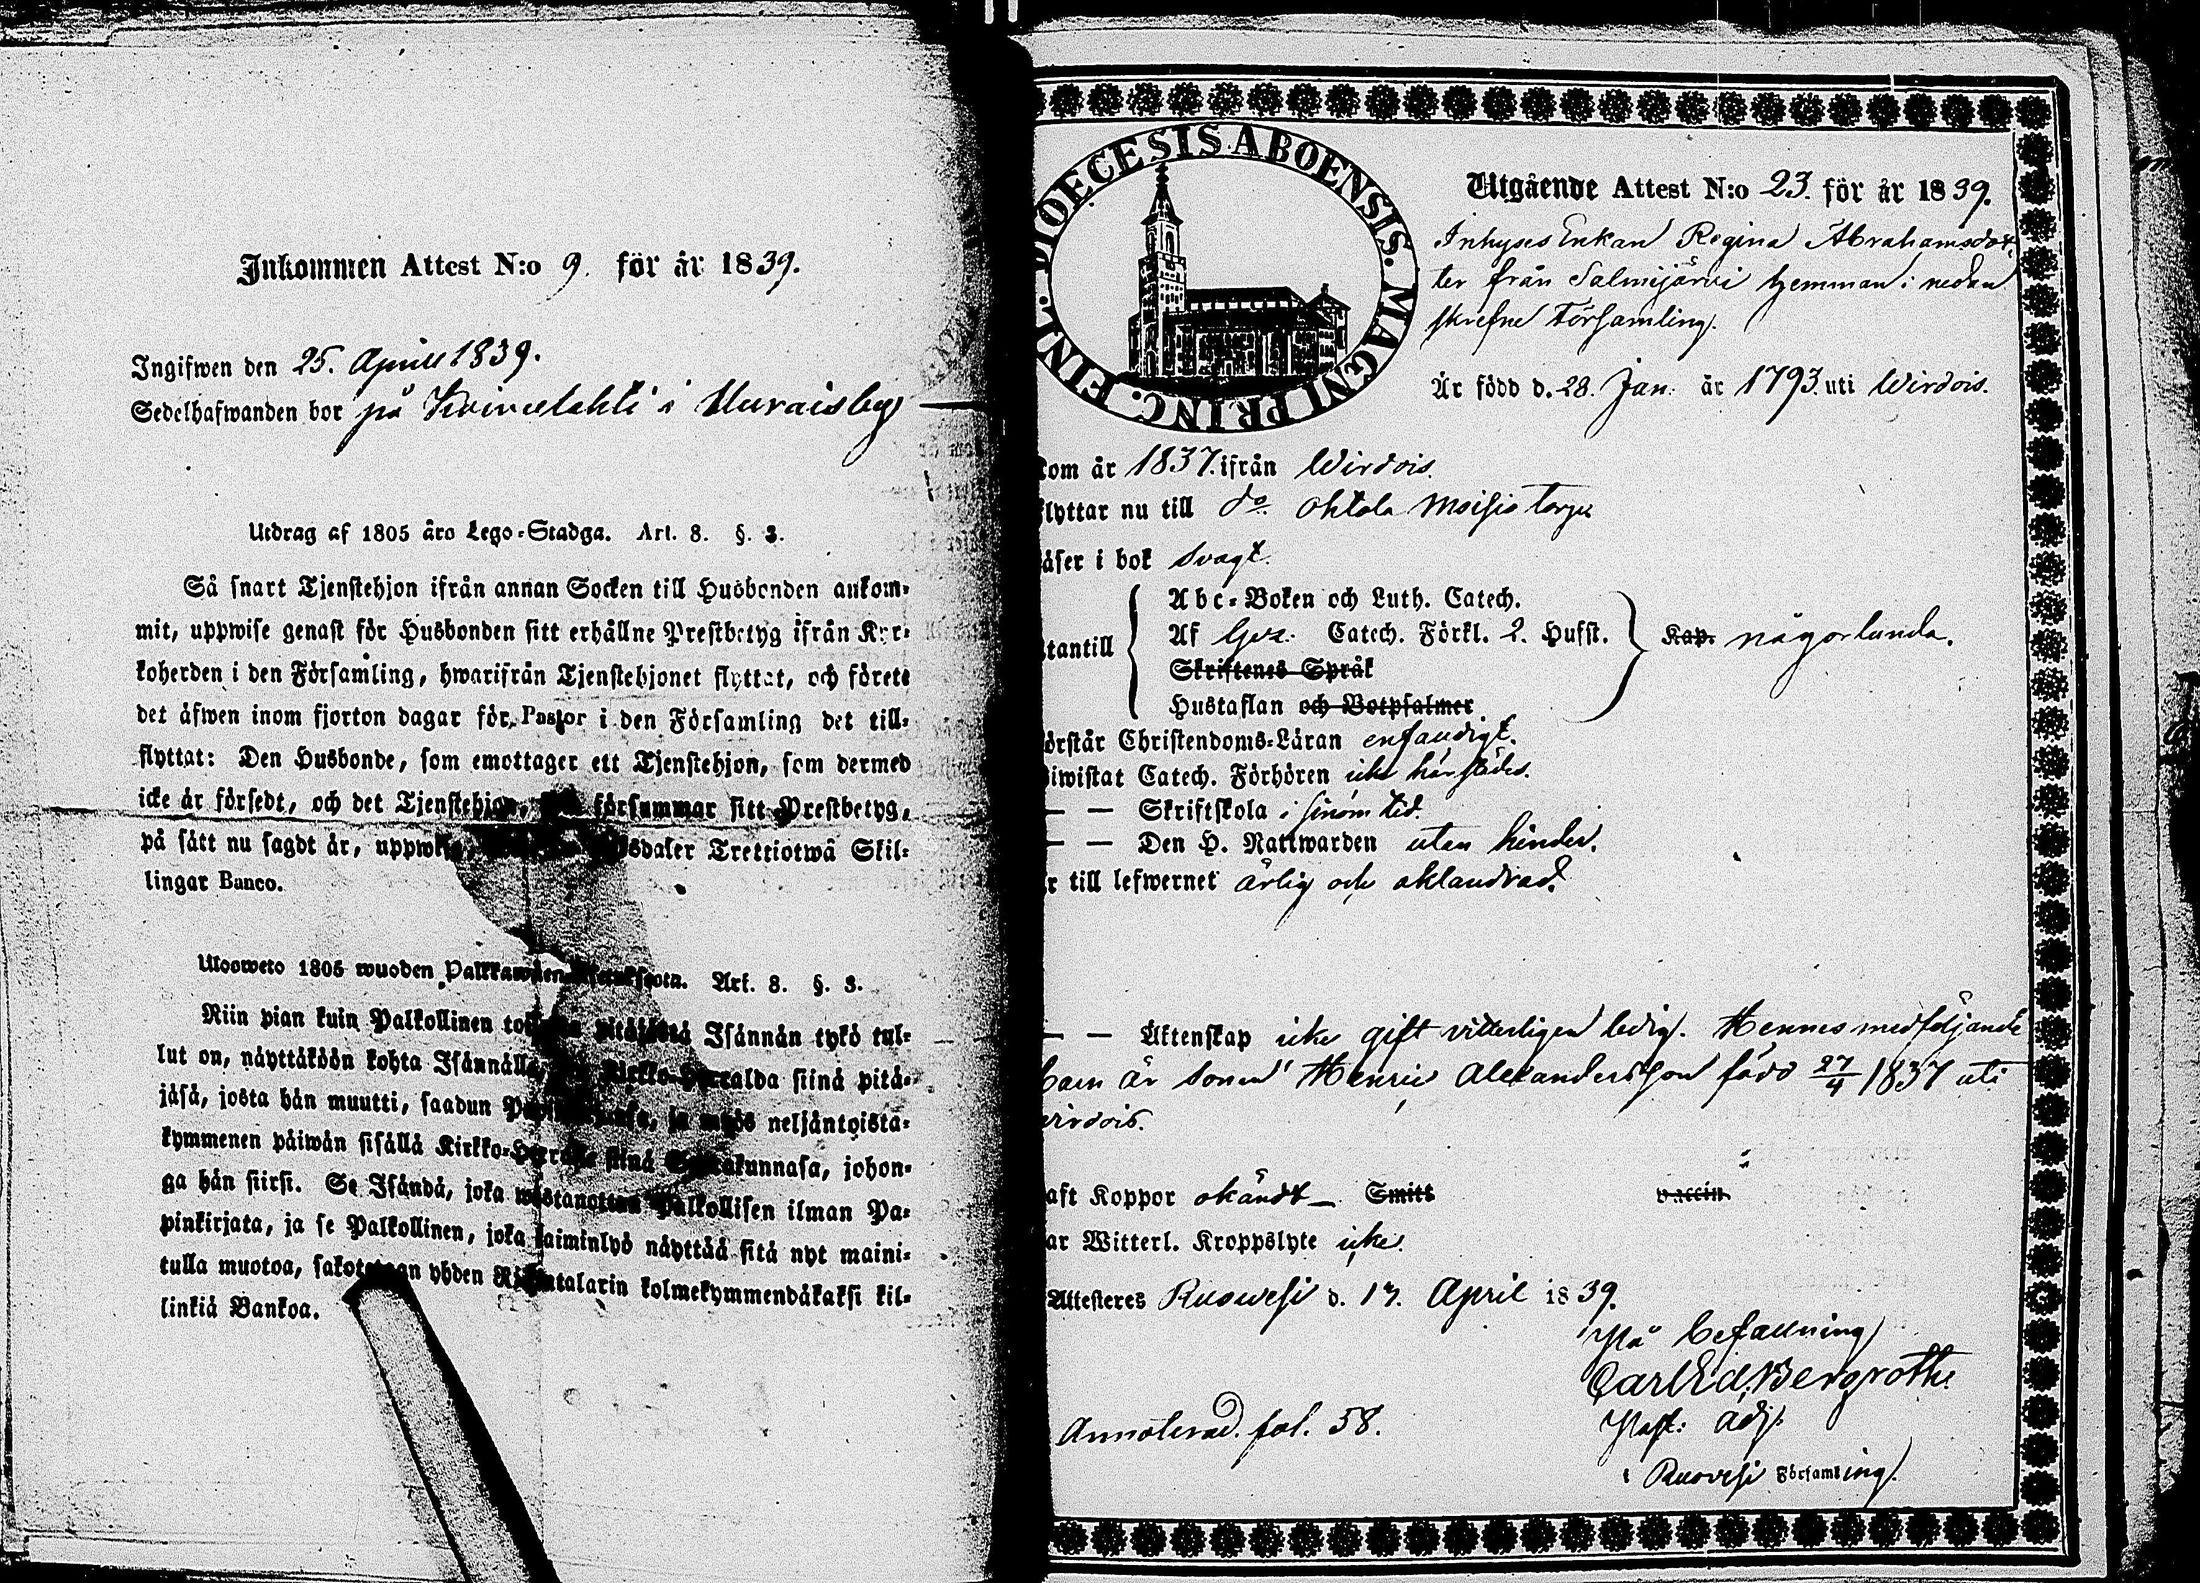 Inkommen Attest N:o 9. för år 1839.
Ingifwen den 25. Aprill 1839.
Sedelhafwanden bor på Koivulahti i Muraisby
Utdrag af 1805 åro Lego-Stadga. Art. 8. §. 3.
Så snart Tjenstehjon ifrån annan Socken till Husbonden ankom-
mit, uppwise genast för Husbonden sitt erhållne Prestbetyg ifrån Kyr-
koherden i den Församling, hwarifrån Tjenstehjonet flyttat, och förete
det äfwen inom fjorton dagar för Pastor i den Församling det till-
flyttat: Den Husbonde, som emottager ett Tjenstehjon, som dermed
icke är försedt, och det Tjenstehjon, försummar sitt Prestbetyg,
på sätt nu sagdt är, Trettiotwå Skil-
lingar Banco.
Ulosweto 1805 wuoden Art. 8. §. 3.
Niin pian kuin Palkollinen Isännän tykö tul-
lut on, näyttäköön kohta siinä pitä-
jäsä, josta hän muutti, saadun ja myös neljäntoista-
kymmenen päiwän sisällä siinä johon-
ga hän siirsi. Se Isändä, joka Palkollisen ilman Pa-
pinkirjata, ja se Palkollinen, joka laiminlyö näyttää sitä nyt maini-
tulla muotoa, yhden kolmekymmendäkaksi kil-
linkiä Bankoa.
DIOECESIS ABOENSIS. MAGNI PRINC. FINL.
Utgående Attest N:o 23. för år 1839.
Inhyses Enkan Regina Abrahamsdot
ter från Salmijärvi hemman i nedan
skrefne Församling.
Är född d. 28. Jan. år 1793. uti Wirdois.
kom år 1837. ifrån Wirdois.
flyttar nu till do. Ohtola Moisio torp
läser i bok svagt.
utantill
Abc-Boken och Luth. Catech.
Af Catech. Förkl. 2. Hufst.
Skriftenes Språk
Hustaflan och Botpsalmer
Kap. någorlunda.
örstår Christendoms-Läran enfaldigt.
biwistat Catech. Förhören icke härstädes.
— — Skriftskola i sinom tid.
— — Den H. Nattwarden utan hinder.
är till lefwernet ärlig och oklandrad.
— — Äktenskap icke gift vitterligen ledig. Hennes medföljande
barn är sonen Henric Alexandersson född 27/4 1837 uti
Wirdois.
aft Koppor okändt — Smitt vaccin.
ar Witterl. Kroppslyte icke.
Attesteres Ruowesi d. 17. April 1839.
På befallning
Carl Ed. Bergroth.
Past: adj.
i Ruovesi Församling.
Annoterad. fol. 58.